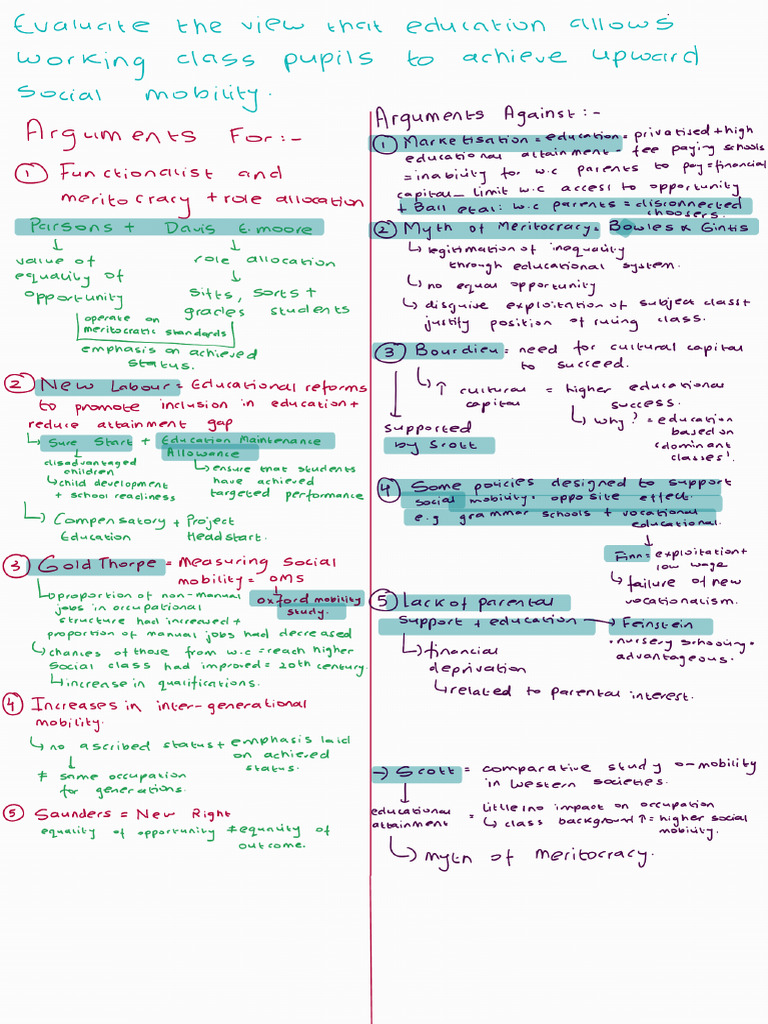 Evaluate the view that education allows
working class pupils to achieve upward
social mobility.
Arguments For:-
① Functionalist and
meritocracy + role allocation
Parsons + Davis & moore
↓ ↓
value of role allocation
equality of ↓
opportunity sifts, sorts +
grades students
operate on
meritocratic standards
emphasis on achieved
status.
② New Labour = Educational reforms
to promote inclusion in education +
reduce attainment gap
↳ Sure Start + Education Maintenance
Allowance
disadvantaged
children
↳ child development
+ school readiness
↳ ensure that students
have achieved
targeted performance
↳ Compensatory + Project
Education Headstart.
③ Gold Thorpe = Measuring social
mobility = OMS
oxford mobility
study.
↳ proportion of non-manual
jobs in occupational
structure had increased +
proportion of manual jobs had decreased
↳ chances of those from w.c = reach higher
social class had improved = 20th century.
↳ increase in qualifications.
④ Increases in inter-generational
mobility.
↳ no ascribed status + emphasis laid
on achieved
status.
↓
≠ same occupation
for generations.
⑤ Saunders = New Right
equality of opportunity ≠ equality of
outcome.
Arguments Against:-
① Marketisation = education = privatised + high
educational attainment - fee paying schools
= inability for w.c parents to pay = financial
capital - limit w.c access to opportunity
+ Ball et al: w.c parents = disconnected
choosers.
② Myth of Meritocracy = Bowles & Gintis
↳ legitimation of inequality
through educational system.
↳ no equal opportunity
↳ disguise exploitation of subject class +
justify position of ruling class.
③ Bourdieu = need for cultural capital
to succeed.
↳ ↑ cultural = higher educational
capital success.
↳ why? = education
based on
(dominant
classes'.
supported
by Scott
④ Some policies designed to support
social mobility = opposite effect.
e.g grammar schools + vocational
educational.
↓
Finn = exploitation +
low wage
↳ failure of new
vocationalism.
⑤ Lack of parental
support + education → Feinstein
• nursery schooling =
advantageous.
↳ financial
deprivation
↳ related to parental interest.
→ Scott = comparative study o-mobility
in western societies.
↓
educational = little/no impact on occupation
attainment ↳ class background ↑ = higher social
mobility.
↳ myth of meritocracy.